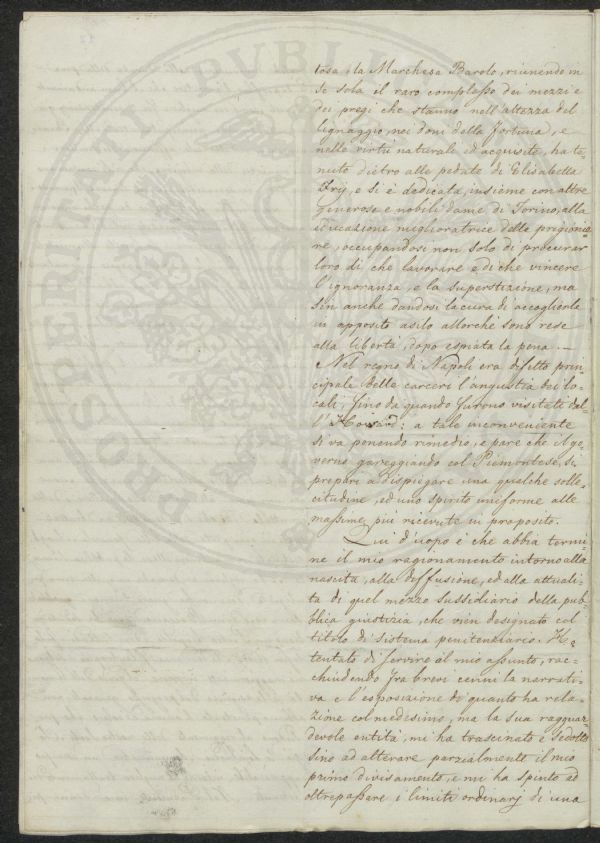 tosa, la Marchesa Barolo, riunendo in
se sola il raro complesso dei mezzi e
dei pregi che stanno nell'altezza del
lignaggio, nei doni della Fortuna, e
nelle virtù naturali ed acquisite, ha te=
nuto dietro alle pedate di Elisabetta
Frÿ, e si è dedicata, insieme con altre
generose e nobili dame di Torino, alla
educazione miglioratrice delle pregionie=
re, occupandosi non solo di procurar
loro di che lavorare e di che vincere
l'ignoranza, e la superstizione, ma
sin anche dandosi la cura di accoglierle
in apposito asilo allorchè sono rese
alla libertà, dopo espiata la pena. —
Nel regno di Napoli era difetto prin=
cipale delle carceri l'angustia dei lo=
cali fino da quando furono visitati dal=
l'Howard: a tale inconveniente
si va ponendo rimedio, e pare che il go=
verno gareggiando col Piemontese, si
prepari a dispiegare una qualche solle=
citudine, ed uno spirito uniforme alle
massime più ricevute in proposito.
Qui d'uopo è che abbia termi=
ne il mio ragionamento intorno alla
nascita, alla diffusione, ed alla attuali=
tà di quel mezzo sussidiario della pub=
blica giustizia, che vien designato col
titolo di sistema penitenziario. Hò
tentato di servire al mio assunto, rac=
chiudendo fra brevi cenni la narrati=
va e l'esposizione di quanto ha rela=
zione col medesimo, ma la sua ragguar=
devole entità, mi ha trascinato e sedotto
sino ad alterare parzialmente il mio
primo divisamento, e mi ha spinto ad
oltrepassare i limiti ordinarj di una
PROSPERITATI PUBLICAE